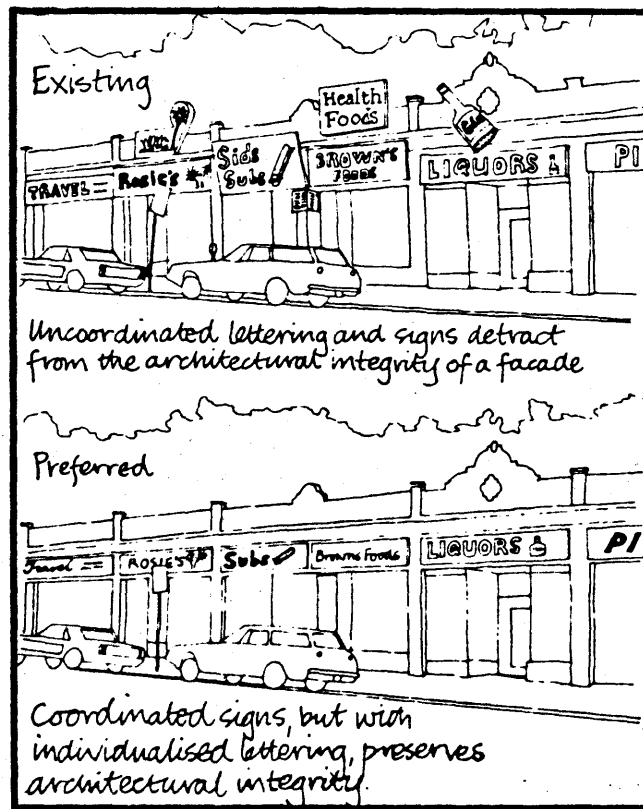 Existing
Health
Foods
Sids
Subs
BROWN'S
FOODS
TRAVEL
Rosie's
LIQUORS
PI
Uncoordinated lettering and signs detract
from the architectural integrity of a facade
Preferred
Travel
ROSIES
Subs
Browns Foods
LIQUORS
PI
Coordinated signs, but with
individualised lettering, preserves
architectural integrity.